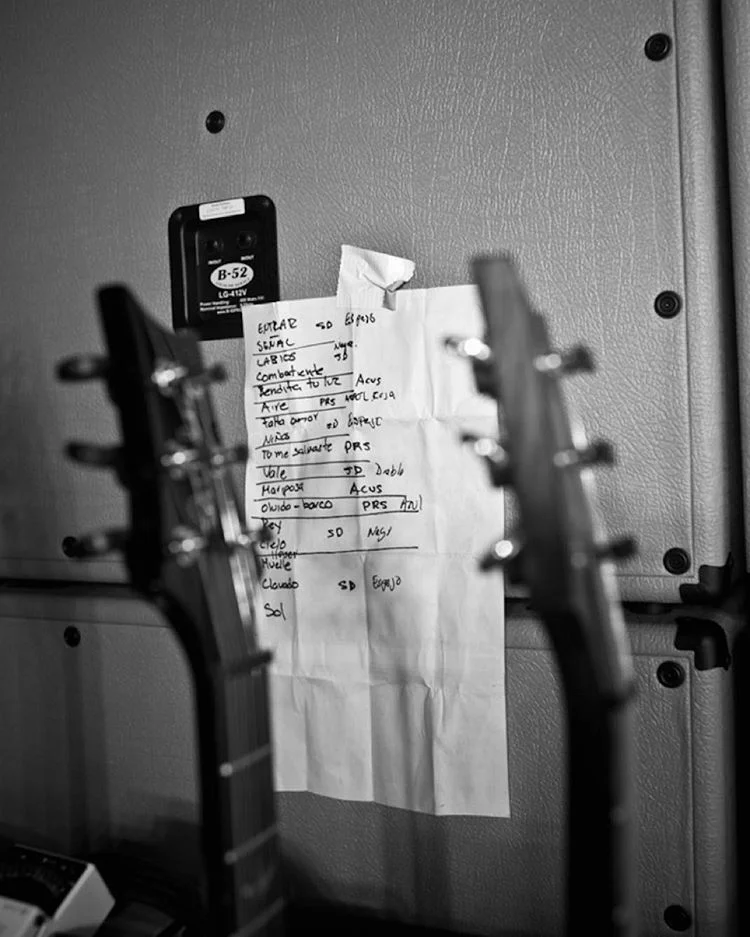 B-52
LG-412V
ENTRAR SD Espejo
SEÑAL
LABIOS SD
Combatiente
Bendita tu luz Acus
Aire PRS
Falta amor
Niños SD Espejo
Tú me salvaste PRS
Vale SD Diablo
Mariposa Acus
Olvido-barco PRS Azul
Rey
Cielo SD
Muelle
Clavado SD Espejo
Sol